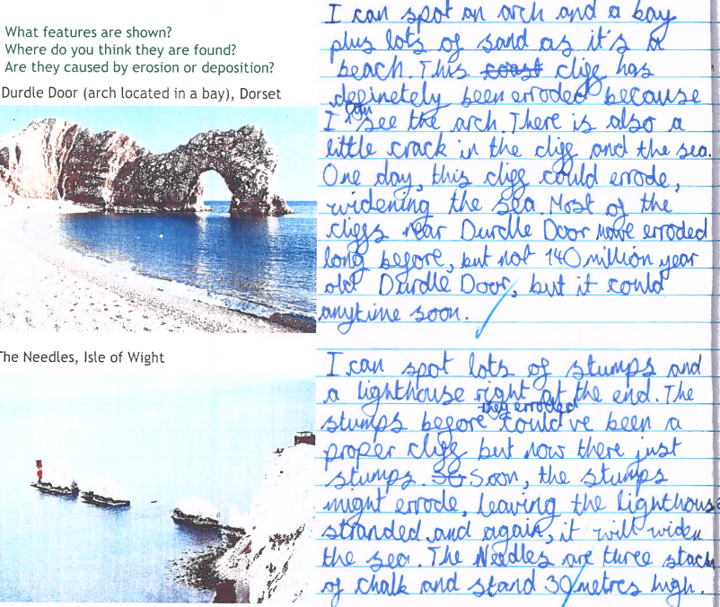 What features are shown?
Where do you think they are found?
Are they caused by erosion or deposition?
Durdle Door (arch located in a bay), Dorset
I can spot an arch and a bay
plus lots of sand as it's a
beach. This coast cliff has
definetely been erroded because
I can see the arch. There is also a
little crack in the cliff and the sea.
One day, this cliff could errode,
widening the sea. Most of the
cliffs near Durdle Door have erroded
long before, but not 140 million year
old Durdle Door, but it could
anytime soon.
The Needles, Isle of Wight
I can spot lots of stumps and
a lighthouse right at the end. The
stumps before they erroded could've been a
proper cliff but now there just
stumps. So Soon, the stumps
might errode, leaving the lighthouse
stranded and again, it will widen
the sea. The Needles are three stacks
of chalk and stand 30 metres high.